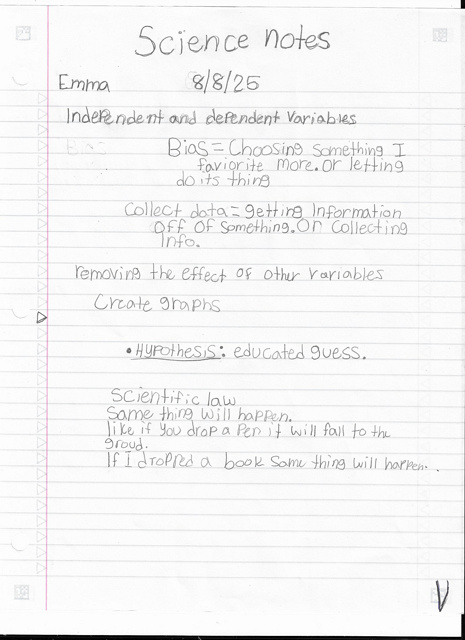 Science notes
Emma 8/8/25
Independent and dependent variables
Bias = Choosing something I
faviorite more. Or letting
do its thing
Collect data = getting Information
off of something. Or collecting
Info.
removing the effect of other variables
Create graphs
• Hypothesis: educated guess.
Scientific law
Same thing will happen.
like if you drop a pen it will fall to the
groud.
If I dropped a book same thing will happen.